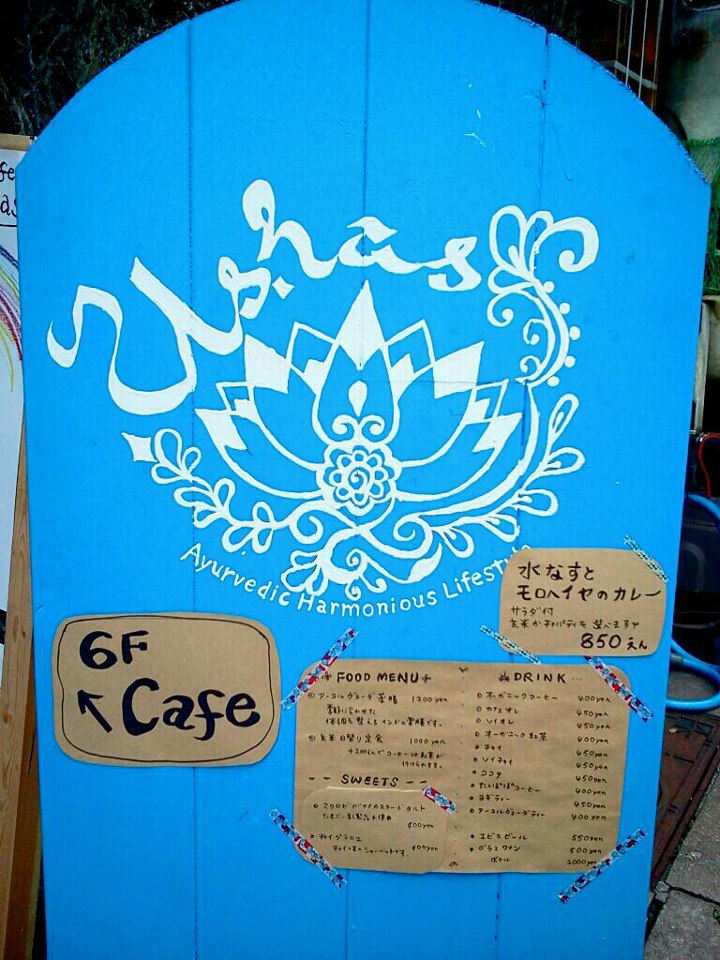 Ushas
Ayurvedic Harmonious Lifestyle
水なすと
モロヘイヤのカレー
サラダ付
玄米かチャパティを選べます
850えん
6F
Cafe
FOOD MENU
アーユルヴェーダ薬膳 1200yen
季節に合わせた
体調を整えるインドの薬膳です。
玄米日替り定食 1000yen
+200えんでコーヒーorお茶が
付けられます。
SWEETS
タルト
400yen
チャイグラニテ
400yen
DRINK
オーガニックコーヒー 400yen
カフェオレ 450yen
ソイオレ 450yen
オーガニック紅茶 400yen
チャイ 450yen
ソイチャイ 450yen
ココア 450yen
たんぽぽコーヒー 400yen
ヨギティー 450yen
アーユルヴェーダティー 400yen
エビスビール 550yen
グラスワイン 500yen
ボトル 2000yen